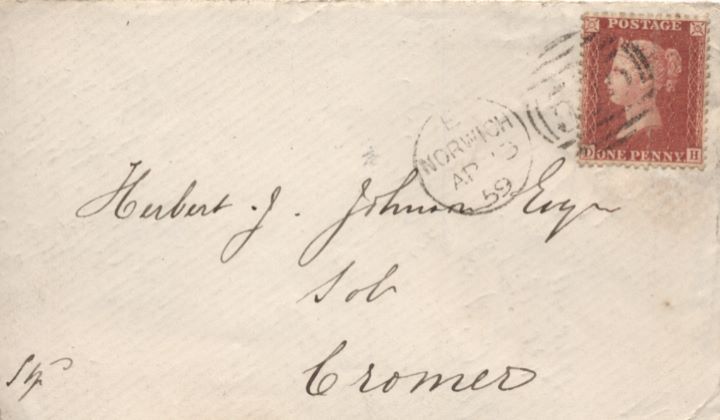 POSTAGE
D ONE PENNY H
E
NORWICH
AP
59
Herbert. J. Johnson Esqr
Sol
Cromer